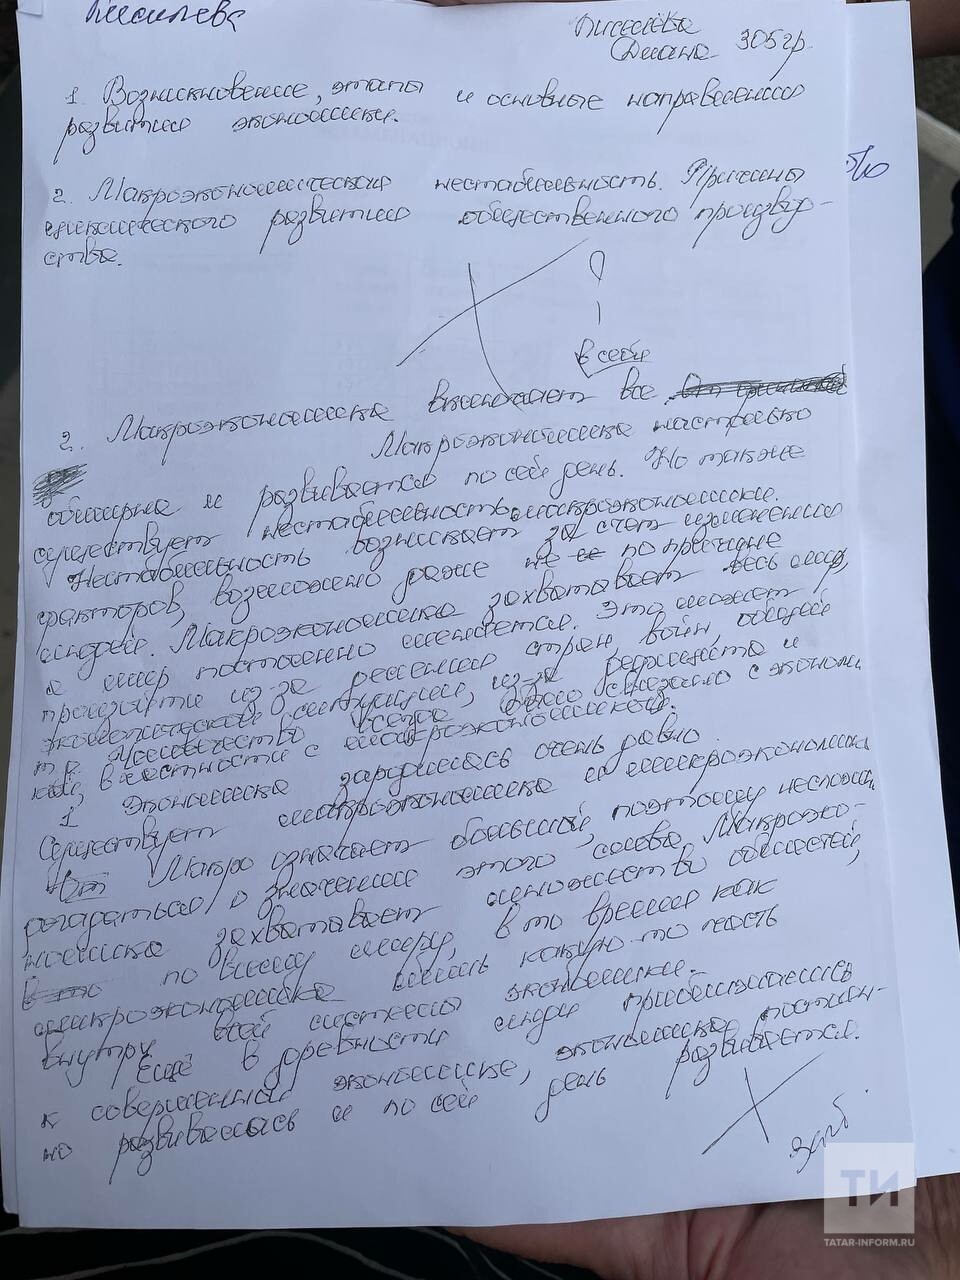 Киселева
Киселёва
Диана 305гр.
1. Возникновение, этапы и основные направления
развития экономики.
2. Макроэкономическая нестабильность. Причины
циклического развития общественного произвут-
ства.
в себя
2. Макроэкономика включает все
Макроэкономика настолько
обширна и развивается по сей день. Но также
существует нестабильность макроэкономики.
Нестабильность возникает за счет изменения
факторов, возможно даже не по причине
людей. Макроэкономика захватывает весь мир,
а мир постоянно меняется. Это может
произойти из-за решения стран, войн, общей
экологической ситуации, из-за
т.е. Человечество всегда было связано с эконом
кой, в частности с макроэкономикой.
1 Экономика зародилась очень давно.
Существует макроэкономика и микроэкономика
Макро означает большой, поэтому несложн
догадаться о значение этого слова. Макроэко-
номика захватывает множество областей,
по всему миру, в то время как
микроэкономика лишь какую-то часть
внутри всей системы экономики.
Ещё в древности люди приблизились
к совершенной экономике, экономика постоян-
но развивалась и по сей день развивается.
ТИ
TATAR-INFORM.RU